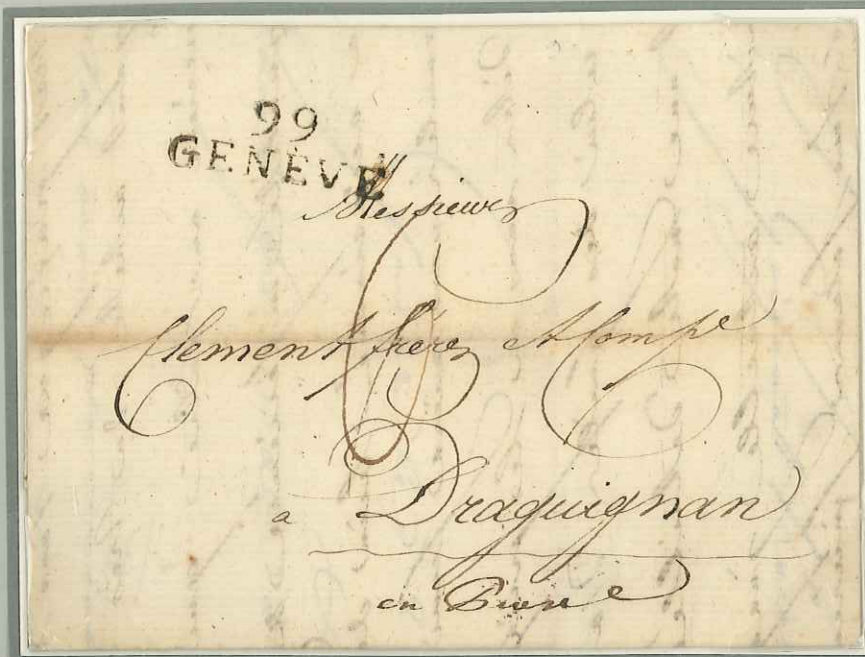 99
GENÈVE
Messieurs
Clement freres et Comp.e
6
a Draguignan
en